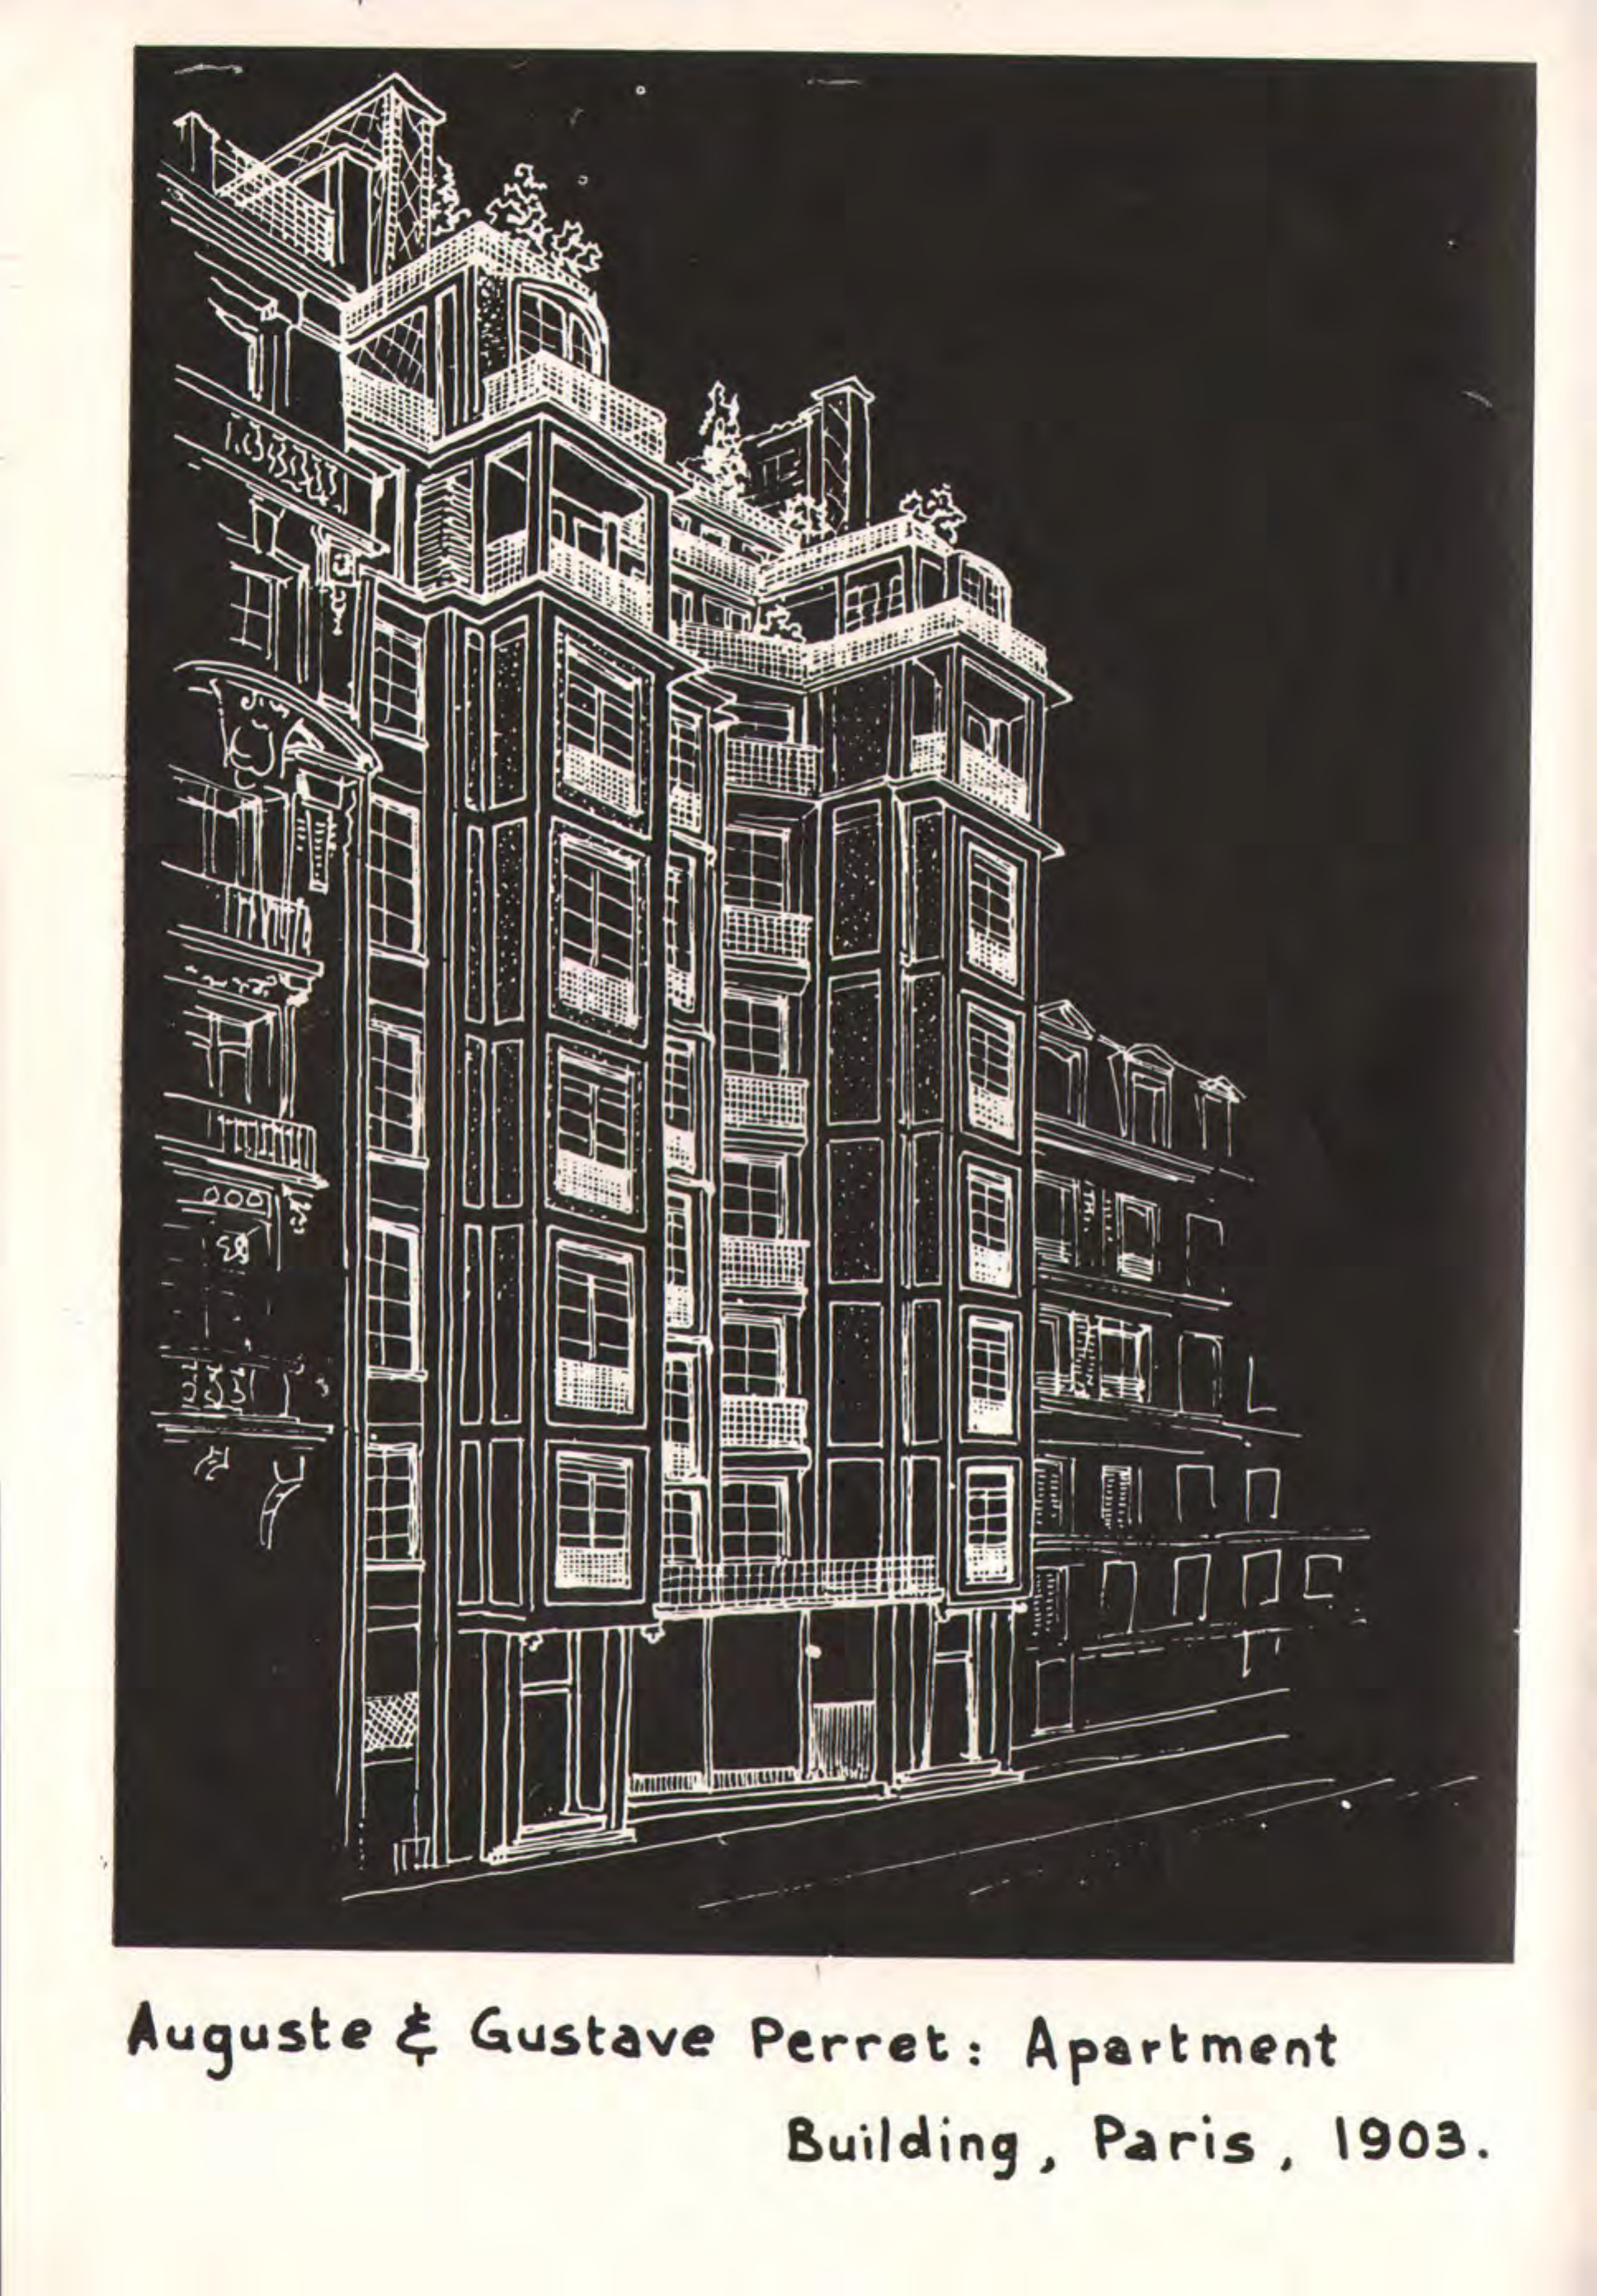 Auguste & Gustave Perret: Apartment
Building, Paris, 1903.